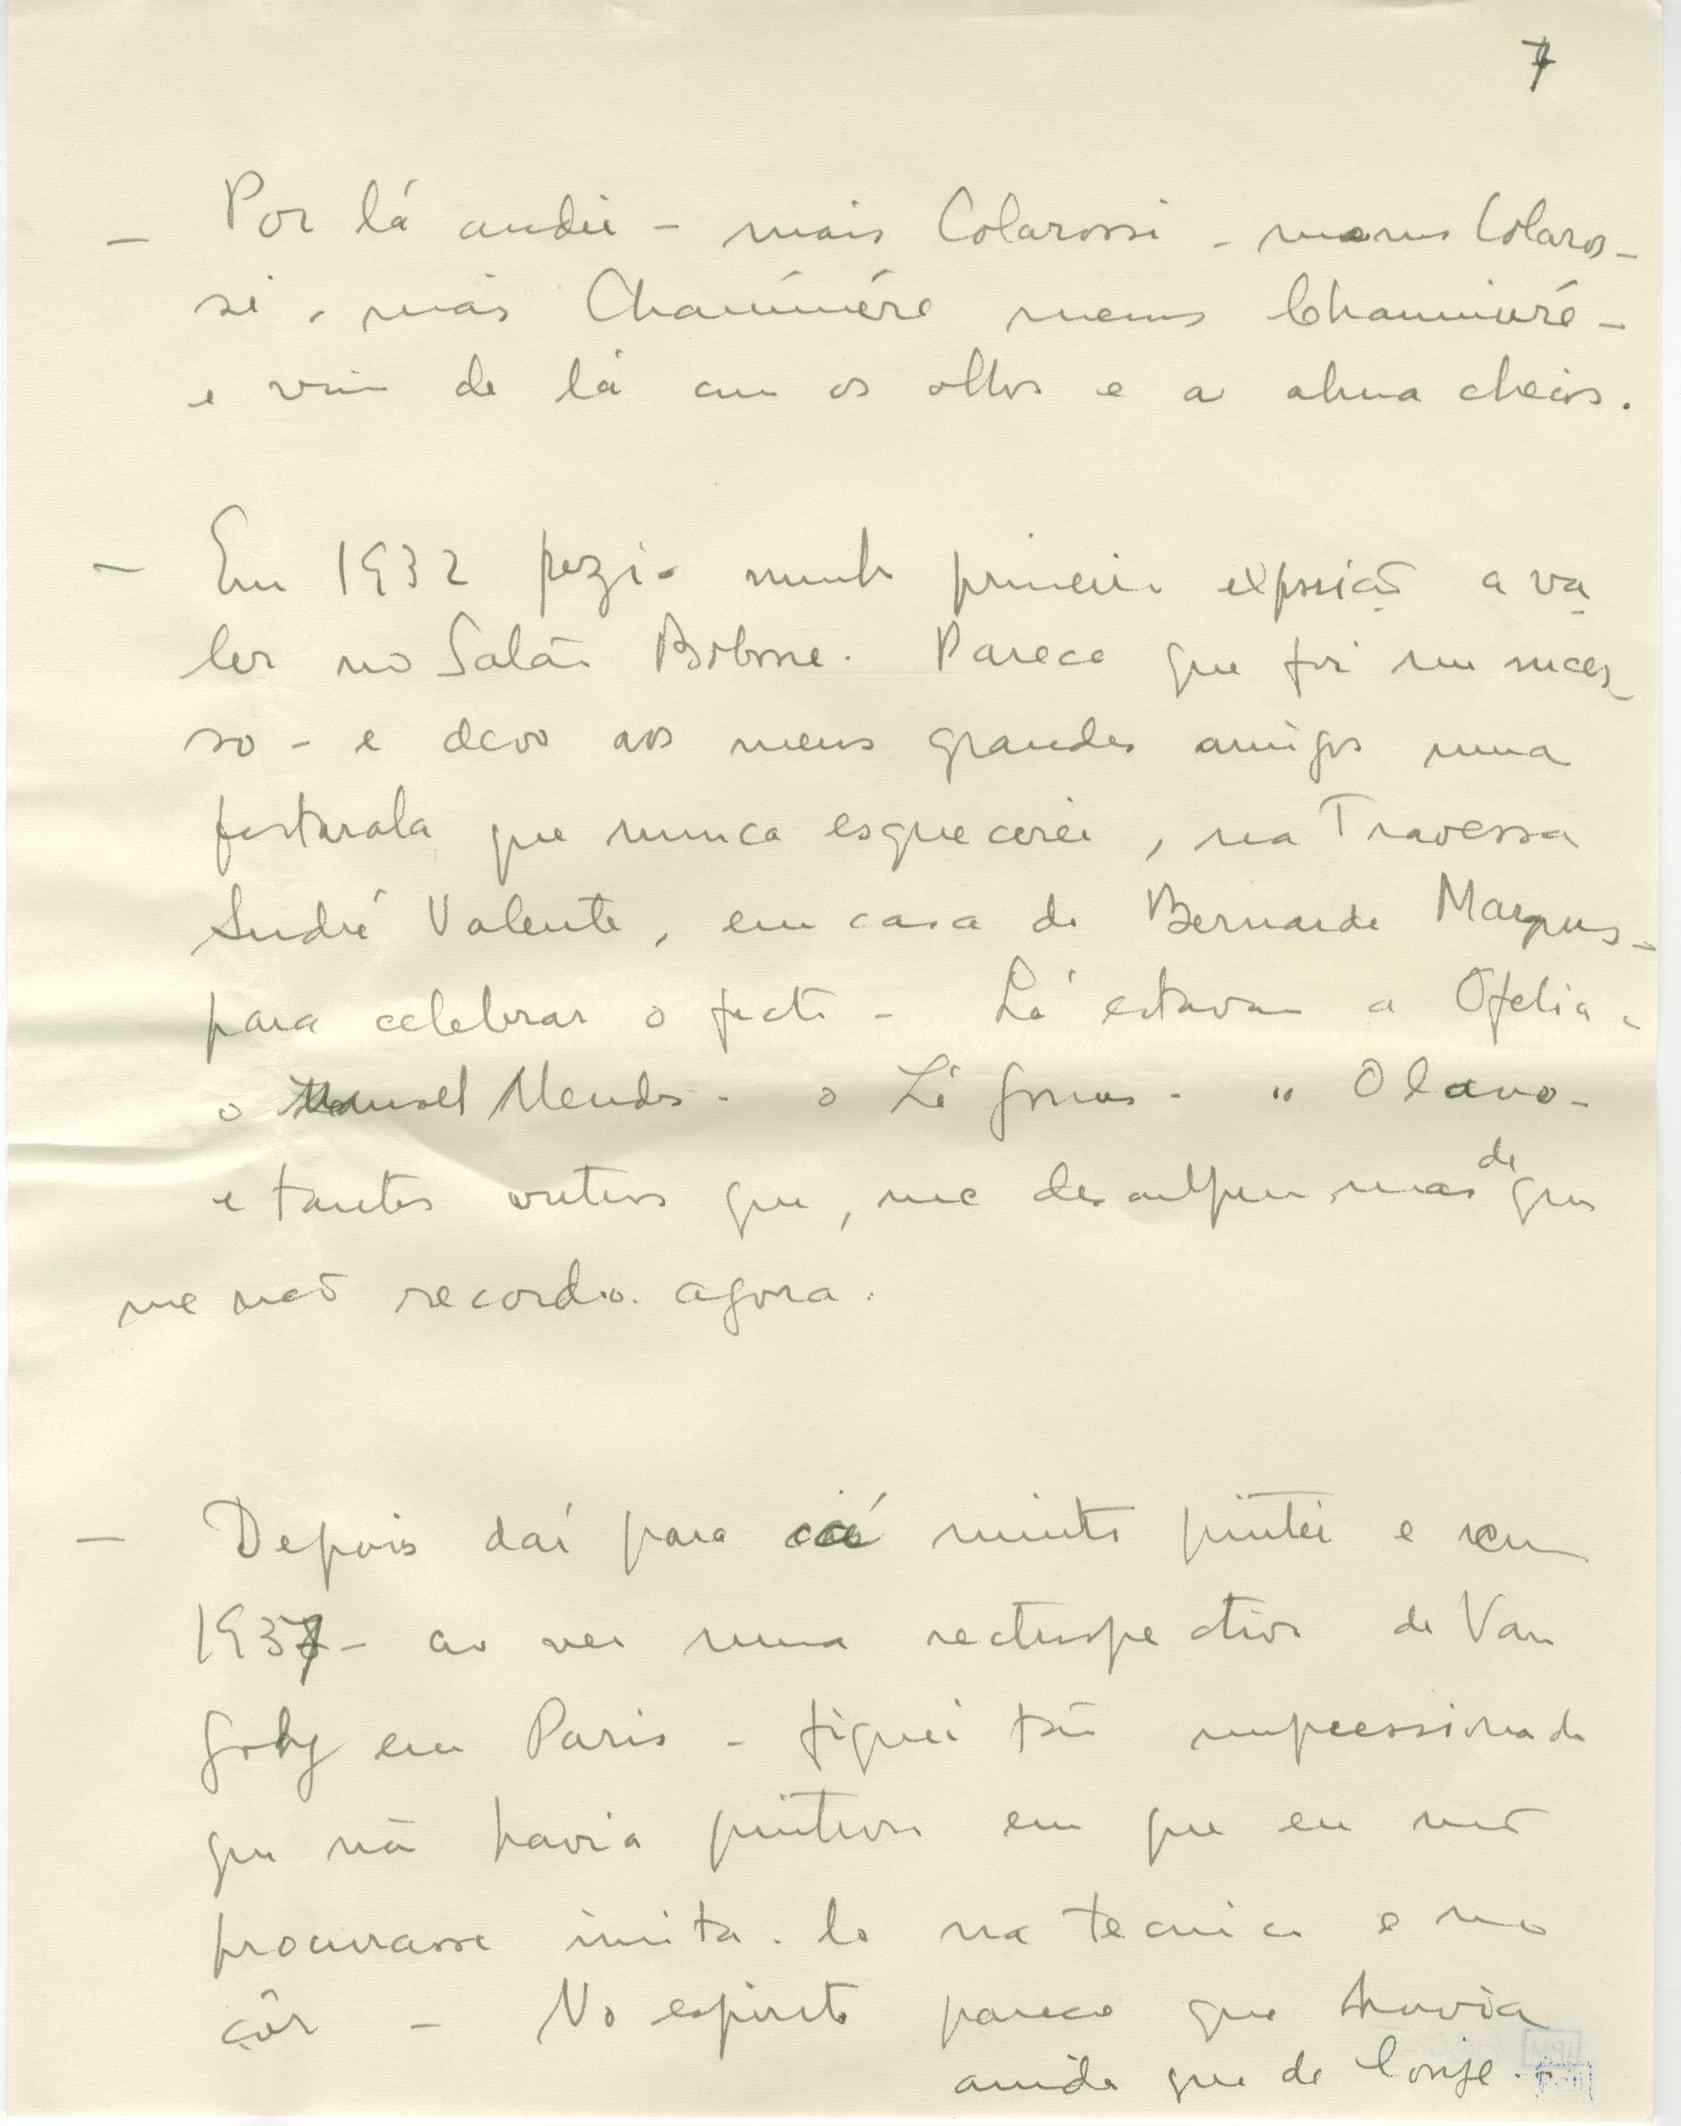 7
– Por lá andei – mais Colarossi – menos Colaros-
si, mais Chaumiére menos Chaumiére –
e vim de lá com os olhos e a alma cheios.
– Em 1932 fiz a minha primeira exposição a va-
ler no Salão Bobone. Parece que foi um suces-
so – e devo aos meus grandes amigos uma
festarola que nunca esquecerei, na Travessa
André Valente, em casa de Bernardo Marques –
para celebrar o facto – Lá estavam a Ofelia,
o Manuel Mendes – o Zé Gomes – o Olavo –
e tantos outros que, me desculpem, mas de que
me não recordo agora.
– Depois daí para cá muito pintei e em
1937 – ao ver uma rectrospectiva de Van
Gohg em Paris – fiquei tão impressionada
que não havia pintura em que eu não
procurasse imita-lo na tecnica e na
côr – No espirito parece que havia
ainda que de longe.